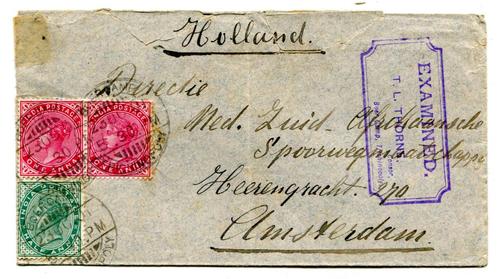 Holland.
Directie
Ned. Zuid-Afrikaansche
Spoorwegmaatschappij
Heerengracht 270
Amsterdam
EXAMINED.
T. L. THORNE
INDIA POSTAGE
ONE ANNA
INDIA POSTAGE
ONE ANNA
INDIA POSTAGE
HALF ANNA